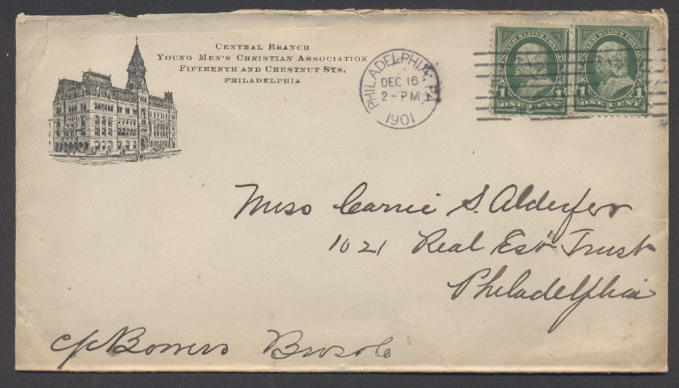 CENTRAL BRANCH
YOUNG MEN'S CHRISTIAN ASSOCIATION
FIFTEENTH AND CHESTNUT STS.
PHILADELPHIA
PHILADELPHIA, PA.
DEC 16
2-PM
1901
1 ONE CENT 1
1 ONE CENT 1
Miss Carrie S. Alderfer
1021 Real Est Trust
Philadelphia
c/o